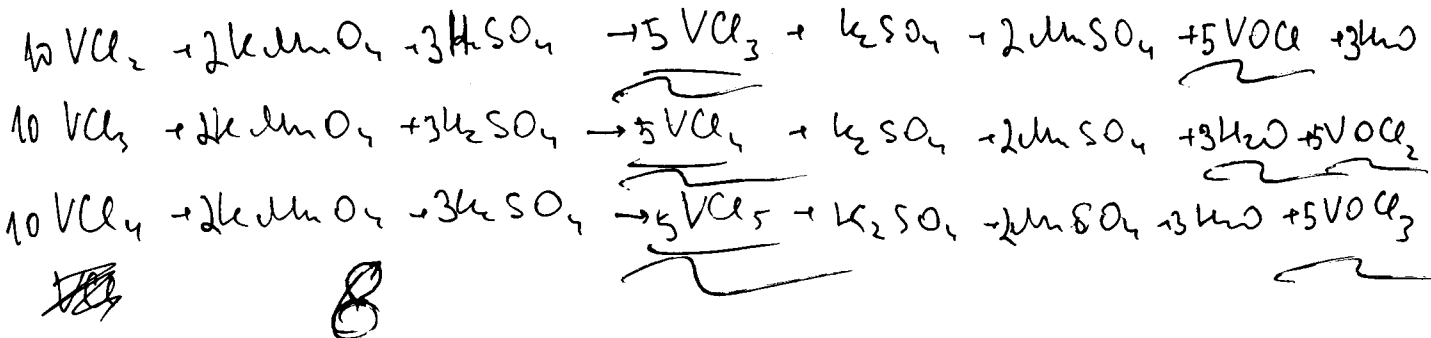 10 VCl₂ + 2KMnO₄ + 3H₂SO₄ → 5 VCl₃ + K₂SO₄ + 2MnSO₄ + 5VOCl + 3H₂O
10 VCl₃ + 2KMnO₄ + 3H₂SO₄ → 5 VCl₄ + K₂SO₄ + 2MnSO₄ + 3H₂O + 5VOCl₂
10 VCl₄ + 2KMnO₄ + 3H₂SO₄ → 5 VCl₅ + K₂SO₄ + 2MnSO₄ + 3H₂O + 5VOCl₃
8